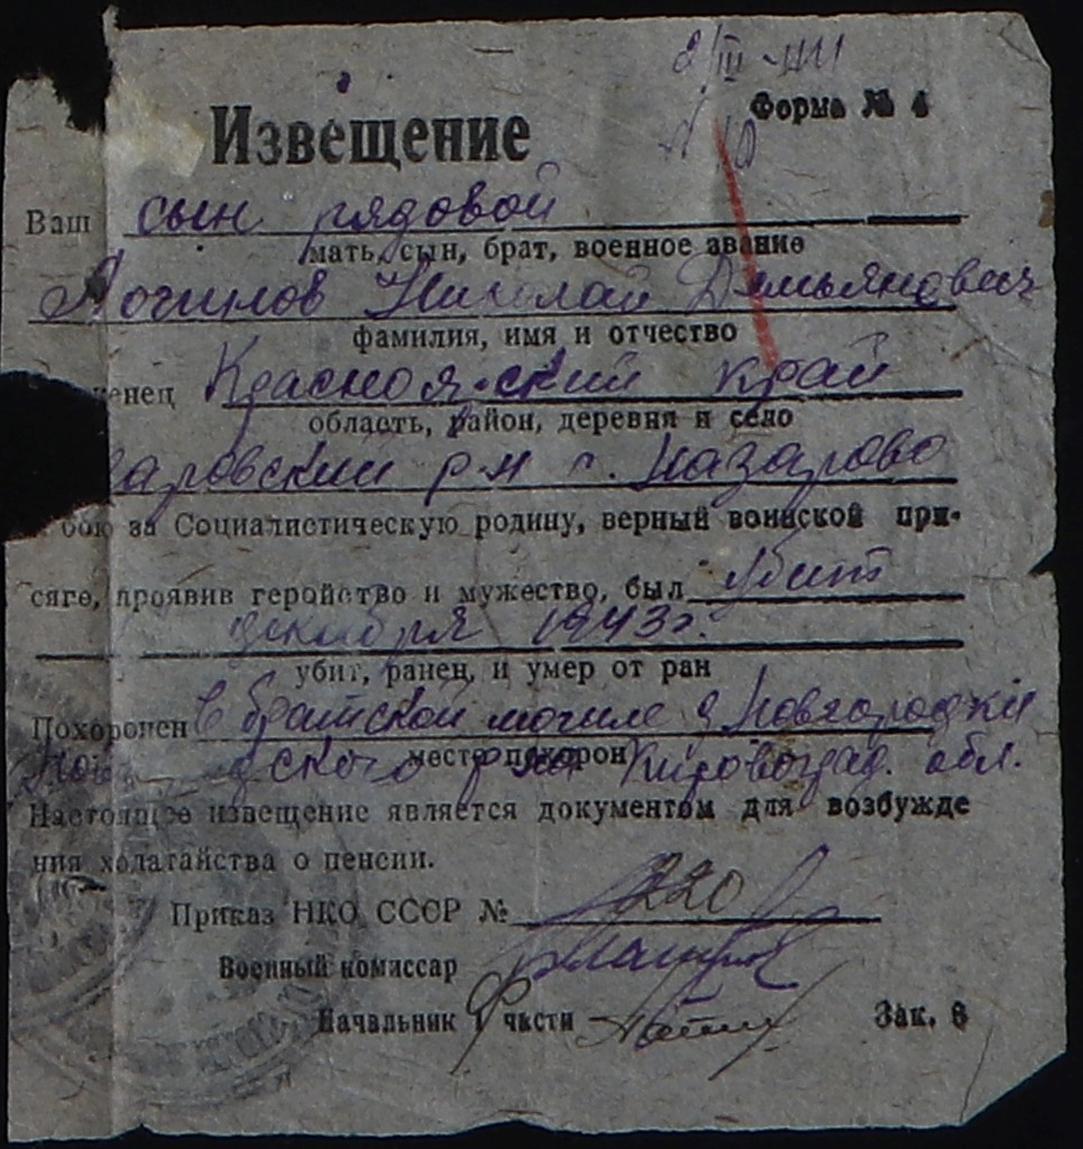 2/III-44
Форма № 4
№ 10
Извещение
Ваш сын рядовой
мать, сын, брат, военное звание
Логинов Николай Демьянович
фамилия, имя и отчество
енец Красноярский край
область, район, деревня и село
заровский р-н г. Назарово
в бою за Социалистическую родину, верный воинской при-
сяге, проявив геройство и мужество, был убит
декабря 1943 г.
убит, ранен, и умер от ран
Похоронен в братской могиле д Новгородки
ского р-на Кировоград. обл.
место похорон
Настоящее извещение является документом для возбужде
ния ходатайства о пенсии.
Приказ НКО СССР № 220
Военный комиссар
Начальник части
Зак. 6